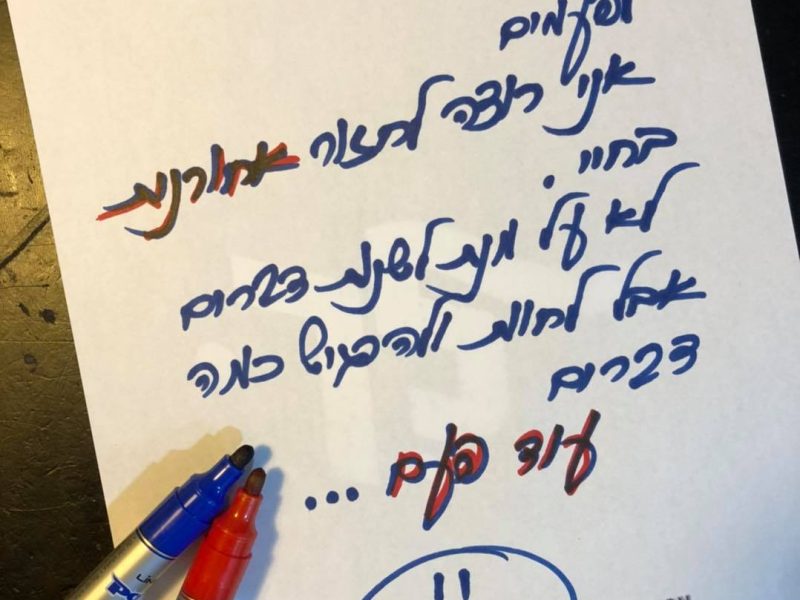 לפעמים
אני רוצה לחזור אחורנית
בחיי.
לא על מנת לשנות דברים
אבל לחוות ולהרגיש כמה
דברים
עוד פעם ...